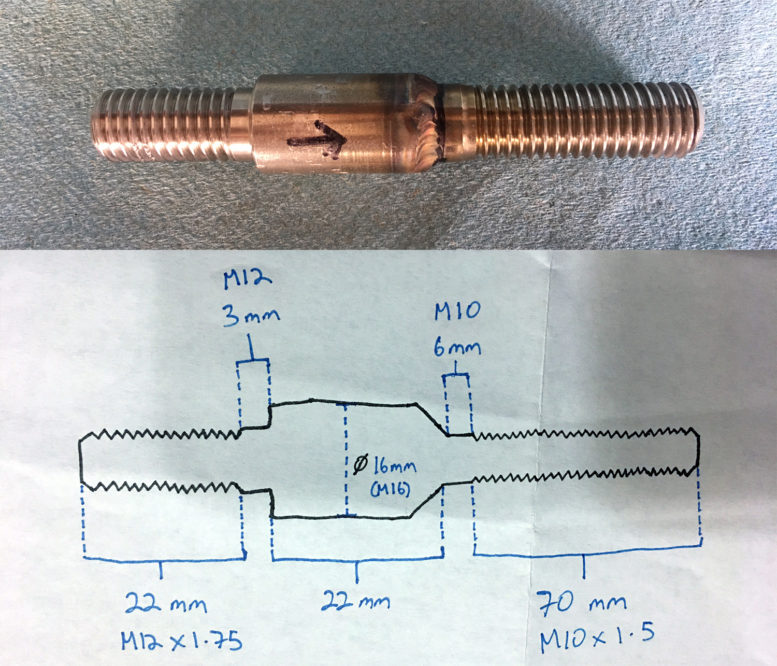 M12
3mm
M10
6mm
Ø 16mm
(M16)
22 mm
M12 x 1.75
22 mm
70 mm
M10 x 1.5